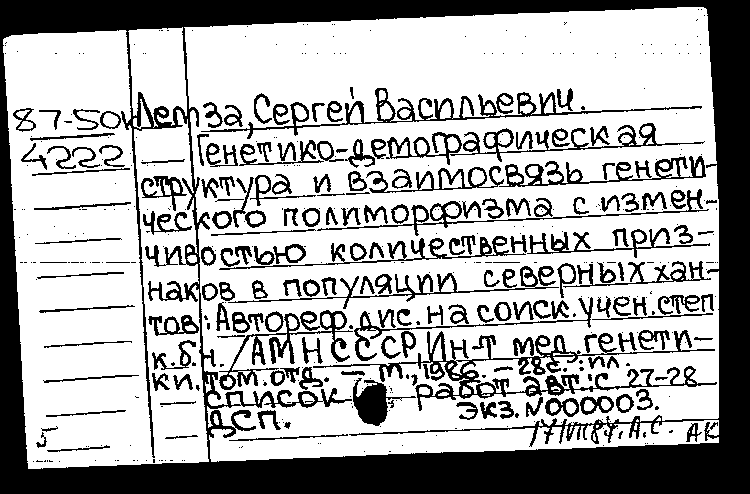 87-50к Лемза, Сергей Васильевич.
4222 Генетико-демографическая
структура и взаимосвязь генети-
ческого полиморфизма с измен-
чивостью количественных приз-
наков в популяции северных хан-
тов: Автореф. дис. на соиск. учен. степ
к.б.н. /АМН СССР, Ин-т мед. генети-
ки. том. отд. – т., 1986. – 28с.: ил.
список работ авт.: с 27-28
ДСП. экз. N000003.
5 17/VII87. А.С. АК